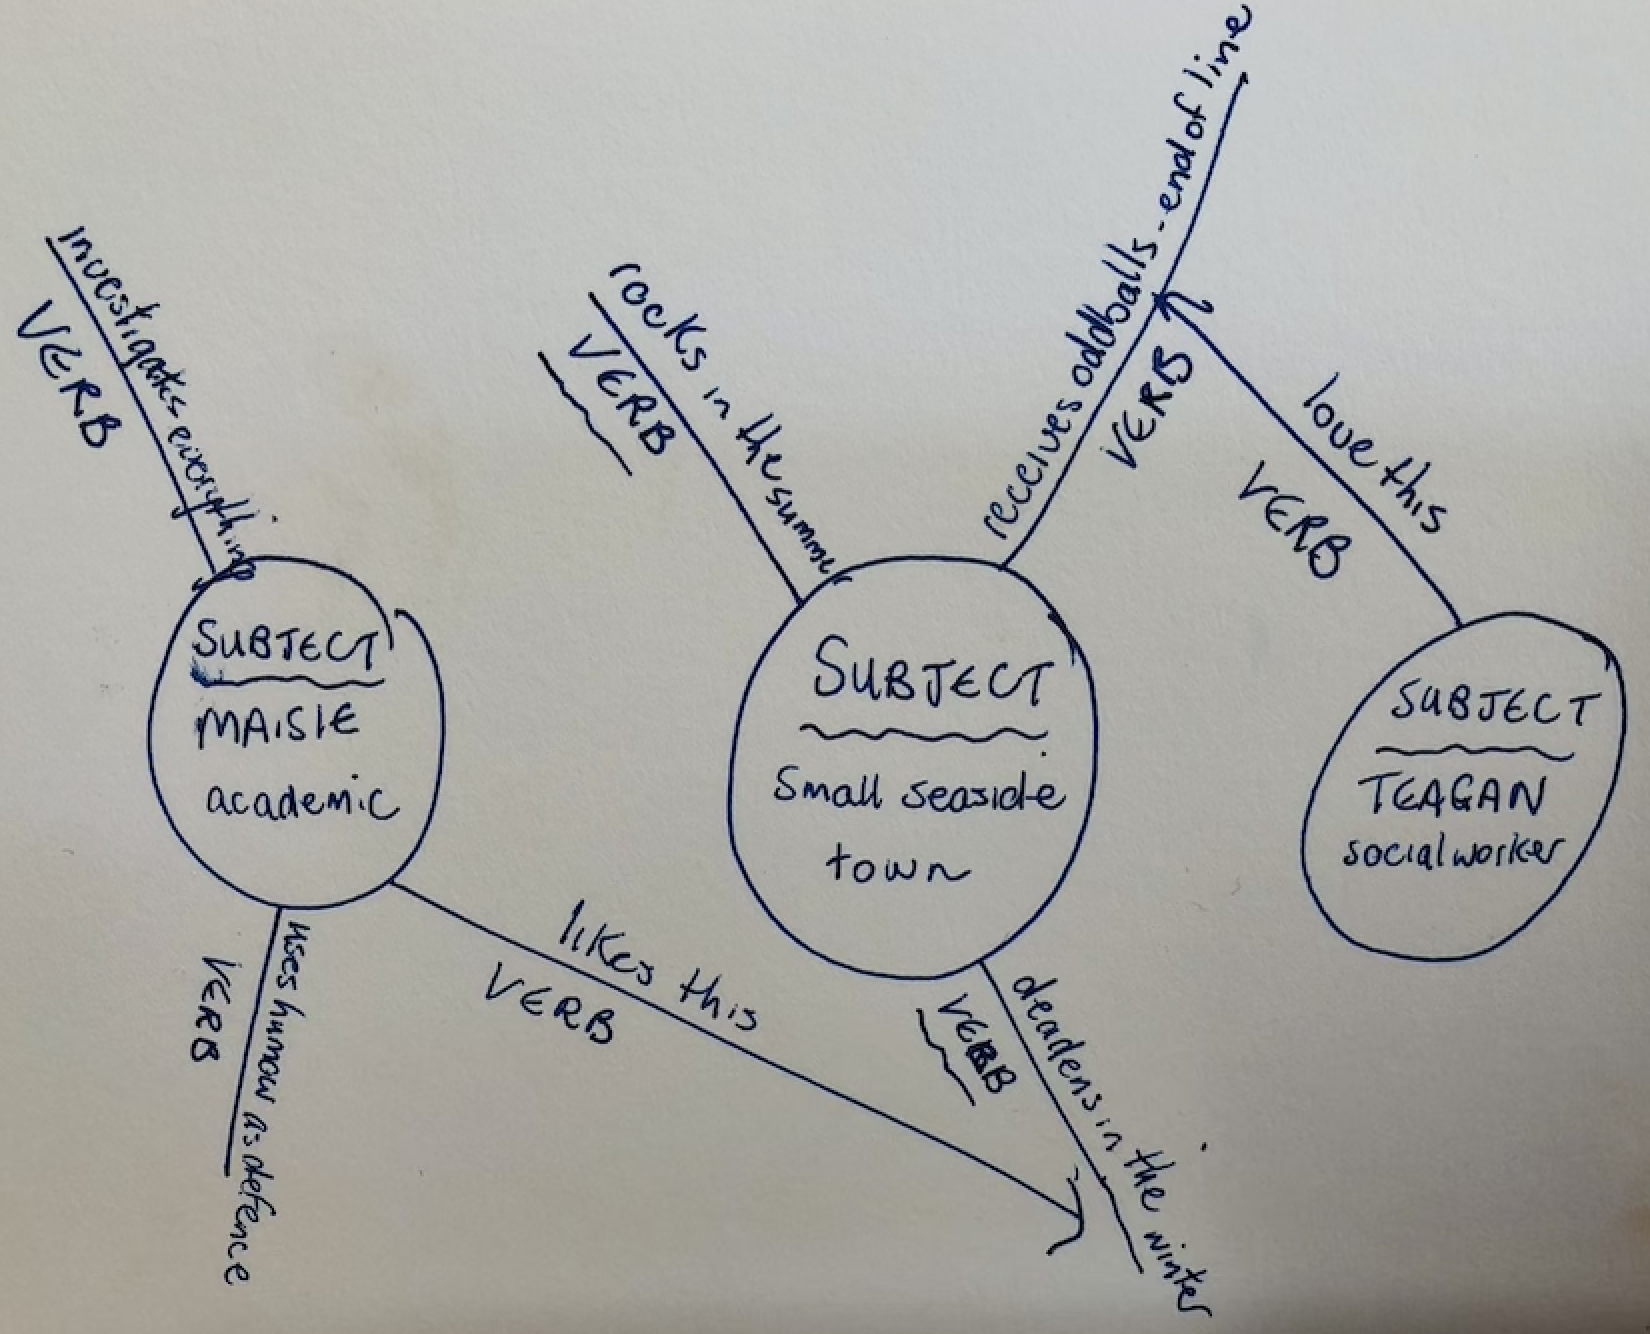 investigates everything
VERB
SUBJECT
MAISIE
academic
uses humour as defence
VERB
likes this
VERB
rocks in the summer
VERB
SUBJECT
Small seaside
town
receives oddballs - end of line
VERB
deadens in the winter
VERB
love this
VERB
SUBJECT
TEAGAN
social worker